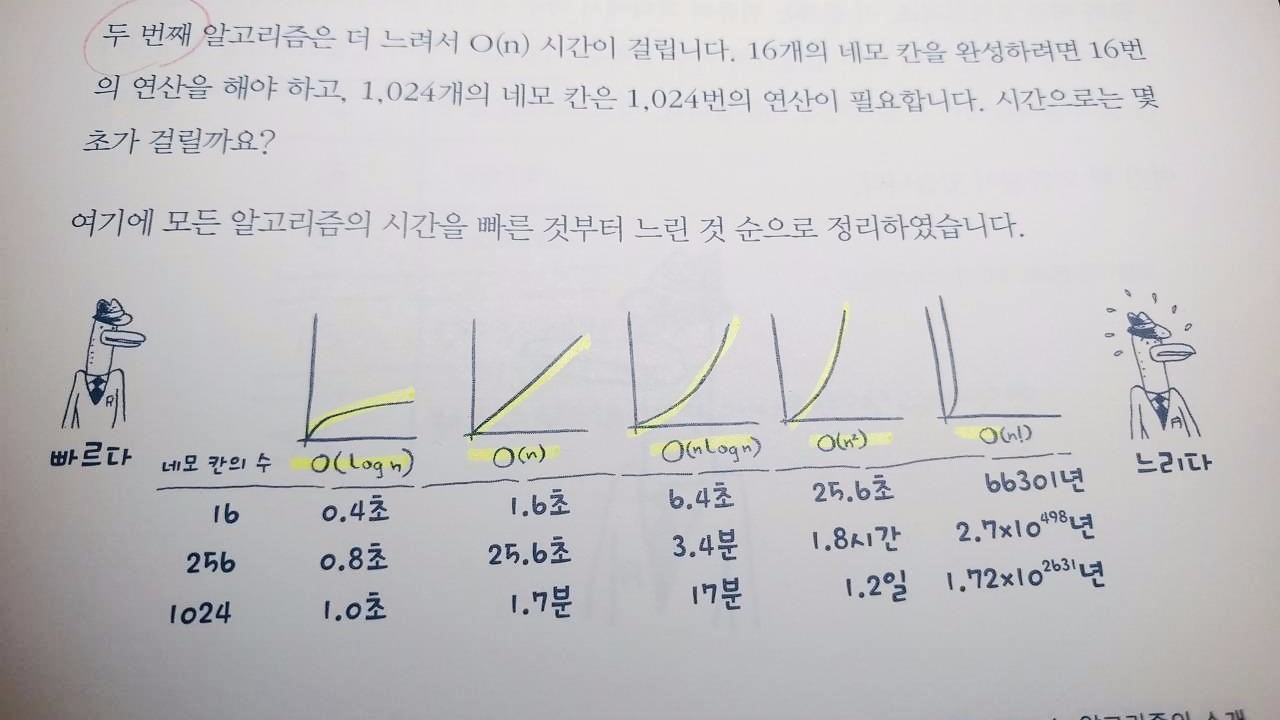 두 번째 알고리즘은 더 느려서 O(n) 시간이 걸립니다. 16개의 네모 칸을 완성하려면 16번
의 연산을 해야 하고, 1,024개의 네모 칸은 1,024번의 연산이 필요합니다. 시간으로는 몇
초가 걸릴까요?
여기에 모든 알고리즘의 시간을 빠른 것부터 느린 것 순으로 정리하였습니다.
빠르다
느리다
네모 칸의 수 O(log n) O(n) O(n log n) O(n²) O(n!)
16 0.4초 1.6초 6.4초 25.6초 66301년
256 0.8초 25.6초 3.4분 1.8시간 2.7x10⁴⁹⁸년
1024 1.0초 1.7분 17분 1.2일 1.72x10²⁶³¹년